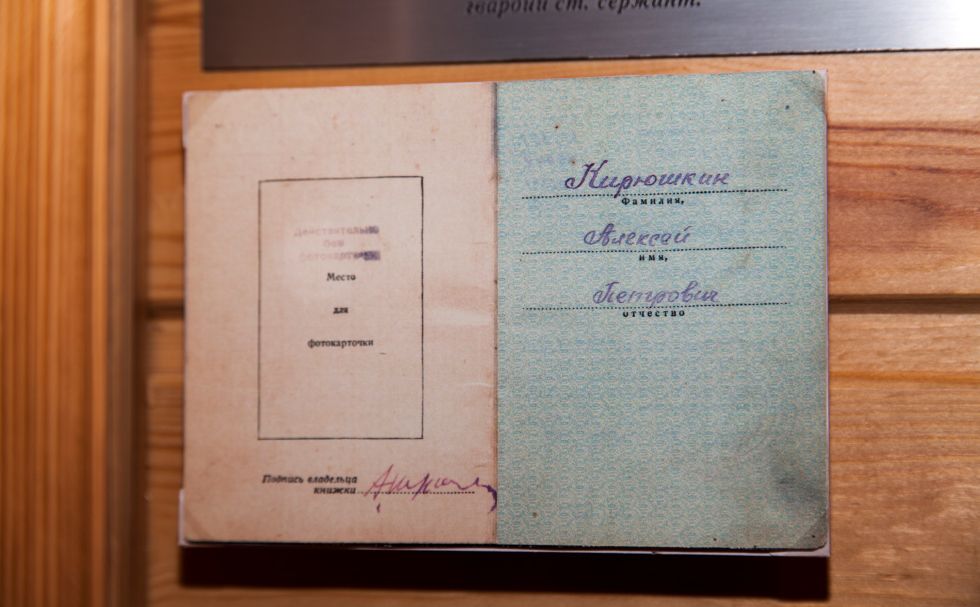 гвардии ст. сержант.
Действительно
без
фотокарточки
Место
для
фотокарточки
Подпись владельца
книжки
Кирюшкин
Фамилия,
Алексей
имя,
Петрович
отчество